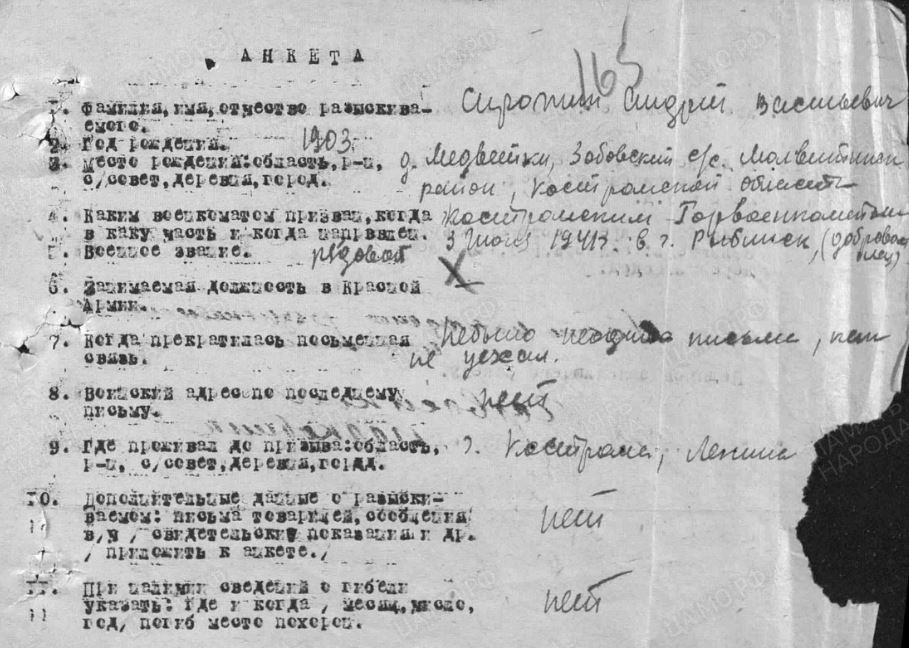 АНКЕТА
165
1. Фамилия, имя, отчество разыскива-
емого.
Андрей Васильевич
2. Год рождения. 1903
3. Место рождения: область, р-н,
с/совет, деревня, город.
д. Медвейки, с/с.
район, Костромской область
4. Каким военкоматом призван, когда
в каку часть и когда направлен.
Костромским Горвоенкоматом
3 1941 г. в г. Рыбинск, (доброволец)
5. Военное звание. рядовой
6. Занимаемая должность в Красной
Армии.
7. Когда прекратилась письменная
связь.
Небыло письма,
не уехал.
8. Воинский адрес по последнему
письму.
нет
9. Где проживал до призыва: область,
р-н, с/совет, деревня, город.
г. Кострома, Ленина
10. Дополнительные данные о разыски-
ваемом: письма товарищей, сообщения
в/ч / свидетельские показания и др.
/ приложить к анкете./
нет
11. При наличии сведений о гибели
указать: где и когда / месяц, число,
год/ погиб место похорон.
нет
ЦАМО РФ